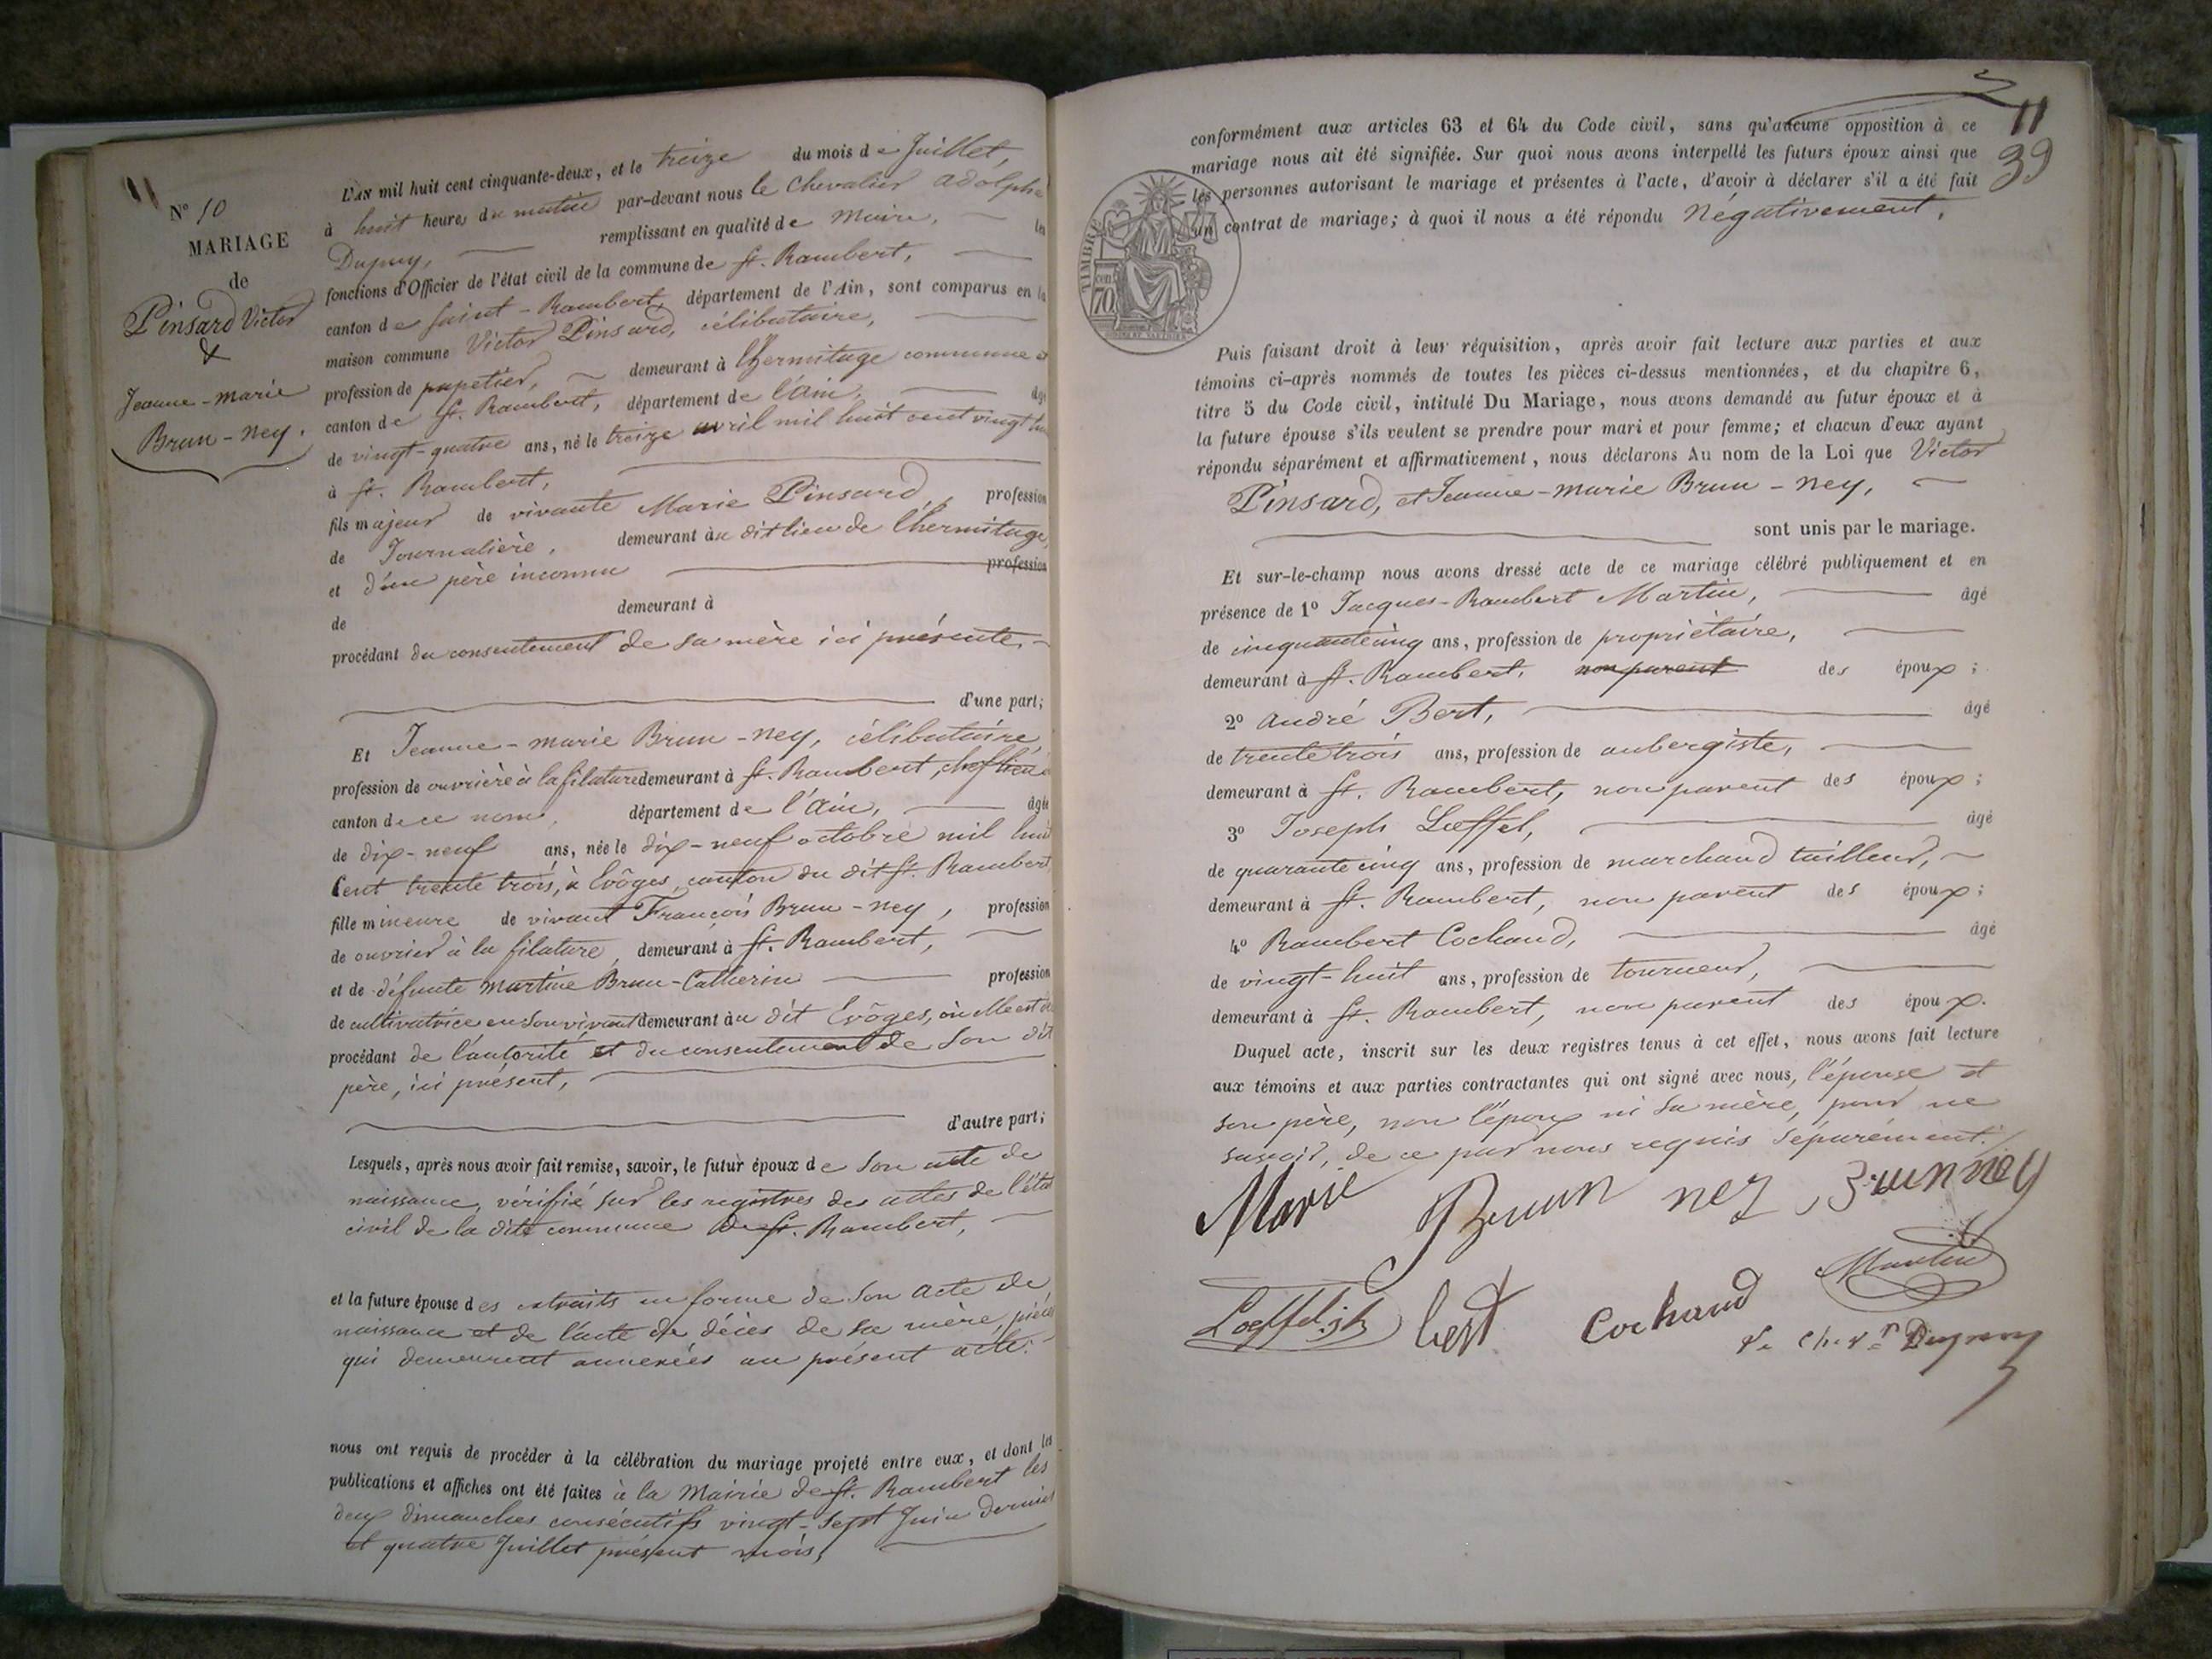 11
N° 10
MARIAGE
de
Pinsard Victor
&
Jeanne-marie
Brun-ney.
L'AN mil huit cent cinquante-deux, et le treize du mois de Juillet,
à huit heures du matin par-devant nous le Chevalier adolphe
Dupuy, remplissant en qualité de Maire, les
fonctions d'Officier de l'état civil de la commune de St. Rambert,
canton de Saint-Rambert, département de l'Ain, sont comparus en la
maison commune Victor Pinsard, célibataire,
profession de papetier, demeurant à l'hermitage commune et
canton de St. Rambert, département de l'ain, âgé
de vingt-quatre ans, né le treize avril mil huit cent vingt huit
à St. Rambert,
fils majeur de vivante Marie Pinsard, profession
de Journalière, demeurant au dit lieu de l'hermitage,
et d'un père inconnu profession
de demeurant à
procédant du consentement de sa mère ici présente,
d'une part;
Et Jeanne-marie Brun-ney, célibataire,
profession de ouvrière à la filature demeurant à St. Rambert, chef lieu
canton de ce nom, département de l'ain, âgée
de dix-neuf ans, née le dix-neuf octobre mil huit
Cent trente trois, à Evôges, canton du dit St. Rambert
fille mineure de vivant François Brun-ney, profession
de ouvrier à la filature, demeurant à St. Rambert,
et de défunte Martine Brun-Catherin profession
de cultivatrice en son vivant demeurant au dit Evôges, où elle est
procédant de l'autorité et du consentement de son dit
père, ici présent,
d'autre part;
Lesquels, après nous avoir fait remise, savoir, le futur époux de son acte de
naissance, vérifié sur les registres des actes de l'état
civil de la dite commune de St. Rambert,
et la future épouse des extraits en forme de son acte de
naissance et de l'acte de décès de sa mère, pièces
qui demeurent annexées au présent acte.
nous ont requis de procéder à la célébration du mariage projeté entre eux, et dont les
publications et affiches ont été faites à la Mairie de St. Rambert les
deux dimanches consécutifs vingt-sept Juin dernier
et quatre Juillet présent mois,
11
39
conformément aux articles 63 et 64 du Code civil, sans qu'aucune opposition à ce
mariage nous ait été signifiée. Sur quoi nous avons interpellé les futurs époux ainsi que
les personnes autorisant le mariage et présentes à l'acte, d'avoir à déclarer s'il a été fait
un contrat de mariage; à quoi il nous a été répondu Négativement.
TIMBRE
cen
70
Puis faisant droit à leur réquisition, après avoir fait lecture aux parties et aux
témoins ci-après nommés de toutes les pièces ci-dessus mentionnées, et du chapitre 6,
titre 5 du Code civil, intitulé Du Mariage, nous avons demandé au futur époux et à
la future épouse s'ils veulent se prendre pour mari et pour femme; et chacun d'eux ayant
répondu séparément et affirmativement, nous déclarons Au nom de la Loi que Victor
Pinsard, et Jeanne-marie Brun-ney,
sont unis par le mariage.
Et sur-le-champ nous avons dressé acte de ce mariage célébré publiquement et en
présence de 1° Jacques-Rambert Martin, âgé
de cinquante cinq ans, profession de propriétaire,
demeurant à St. Rambert, non parent des époux;
2° André Bert, âgé
de trente trois ans, profession de aubergiste,
demeurant à St. Rambert, non parent des époux;
3° Joseph Lœffel, âgé
de quarante cinq ans, profession de marchand tailleur,
demeurant à St. Rambert, non parent des époux;
4° Rambert Cochaud, âgé
de vingt-huit ans, profession de tourneur,
demeurant à St. Rambert, non parent des époux.
Duquel acte, inscrit sur les deux registres tenus à cet effet, nous avons fait lecture
aux témoins et aux parties contractantes qui ont signé avec nous, l'épouse et
son père, non l'époux ni sa mère, pour ne
savoir, de ce par nous requis séparément.
Marie Brun nez Brunney
Martin
Loeffel jh bert Cochaud
Le Chev.r Dupuy